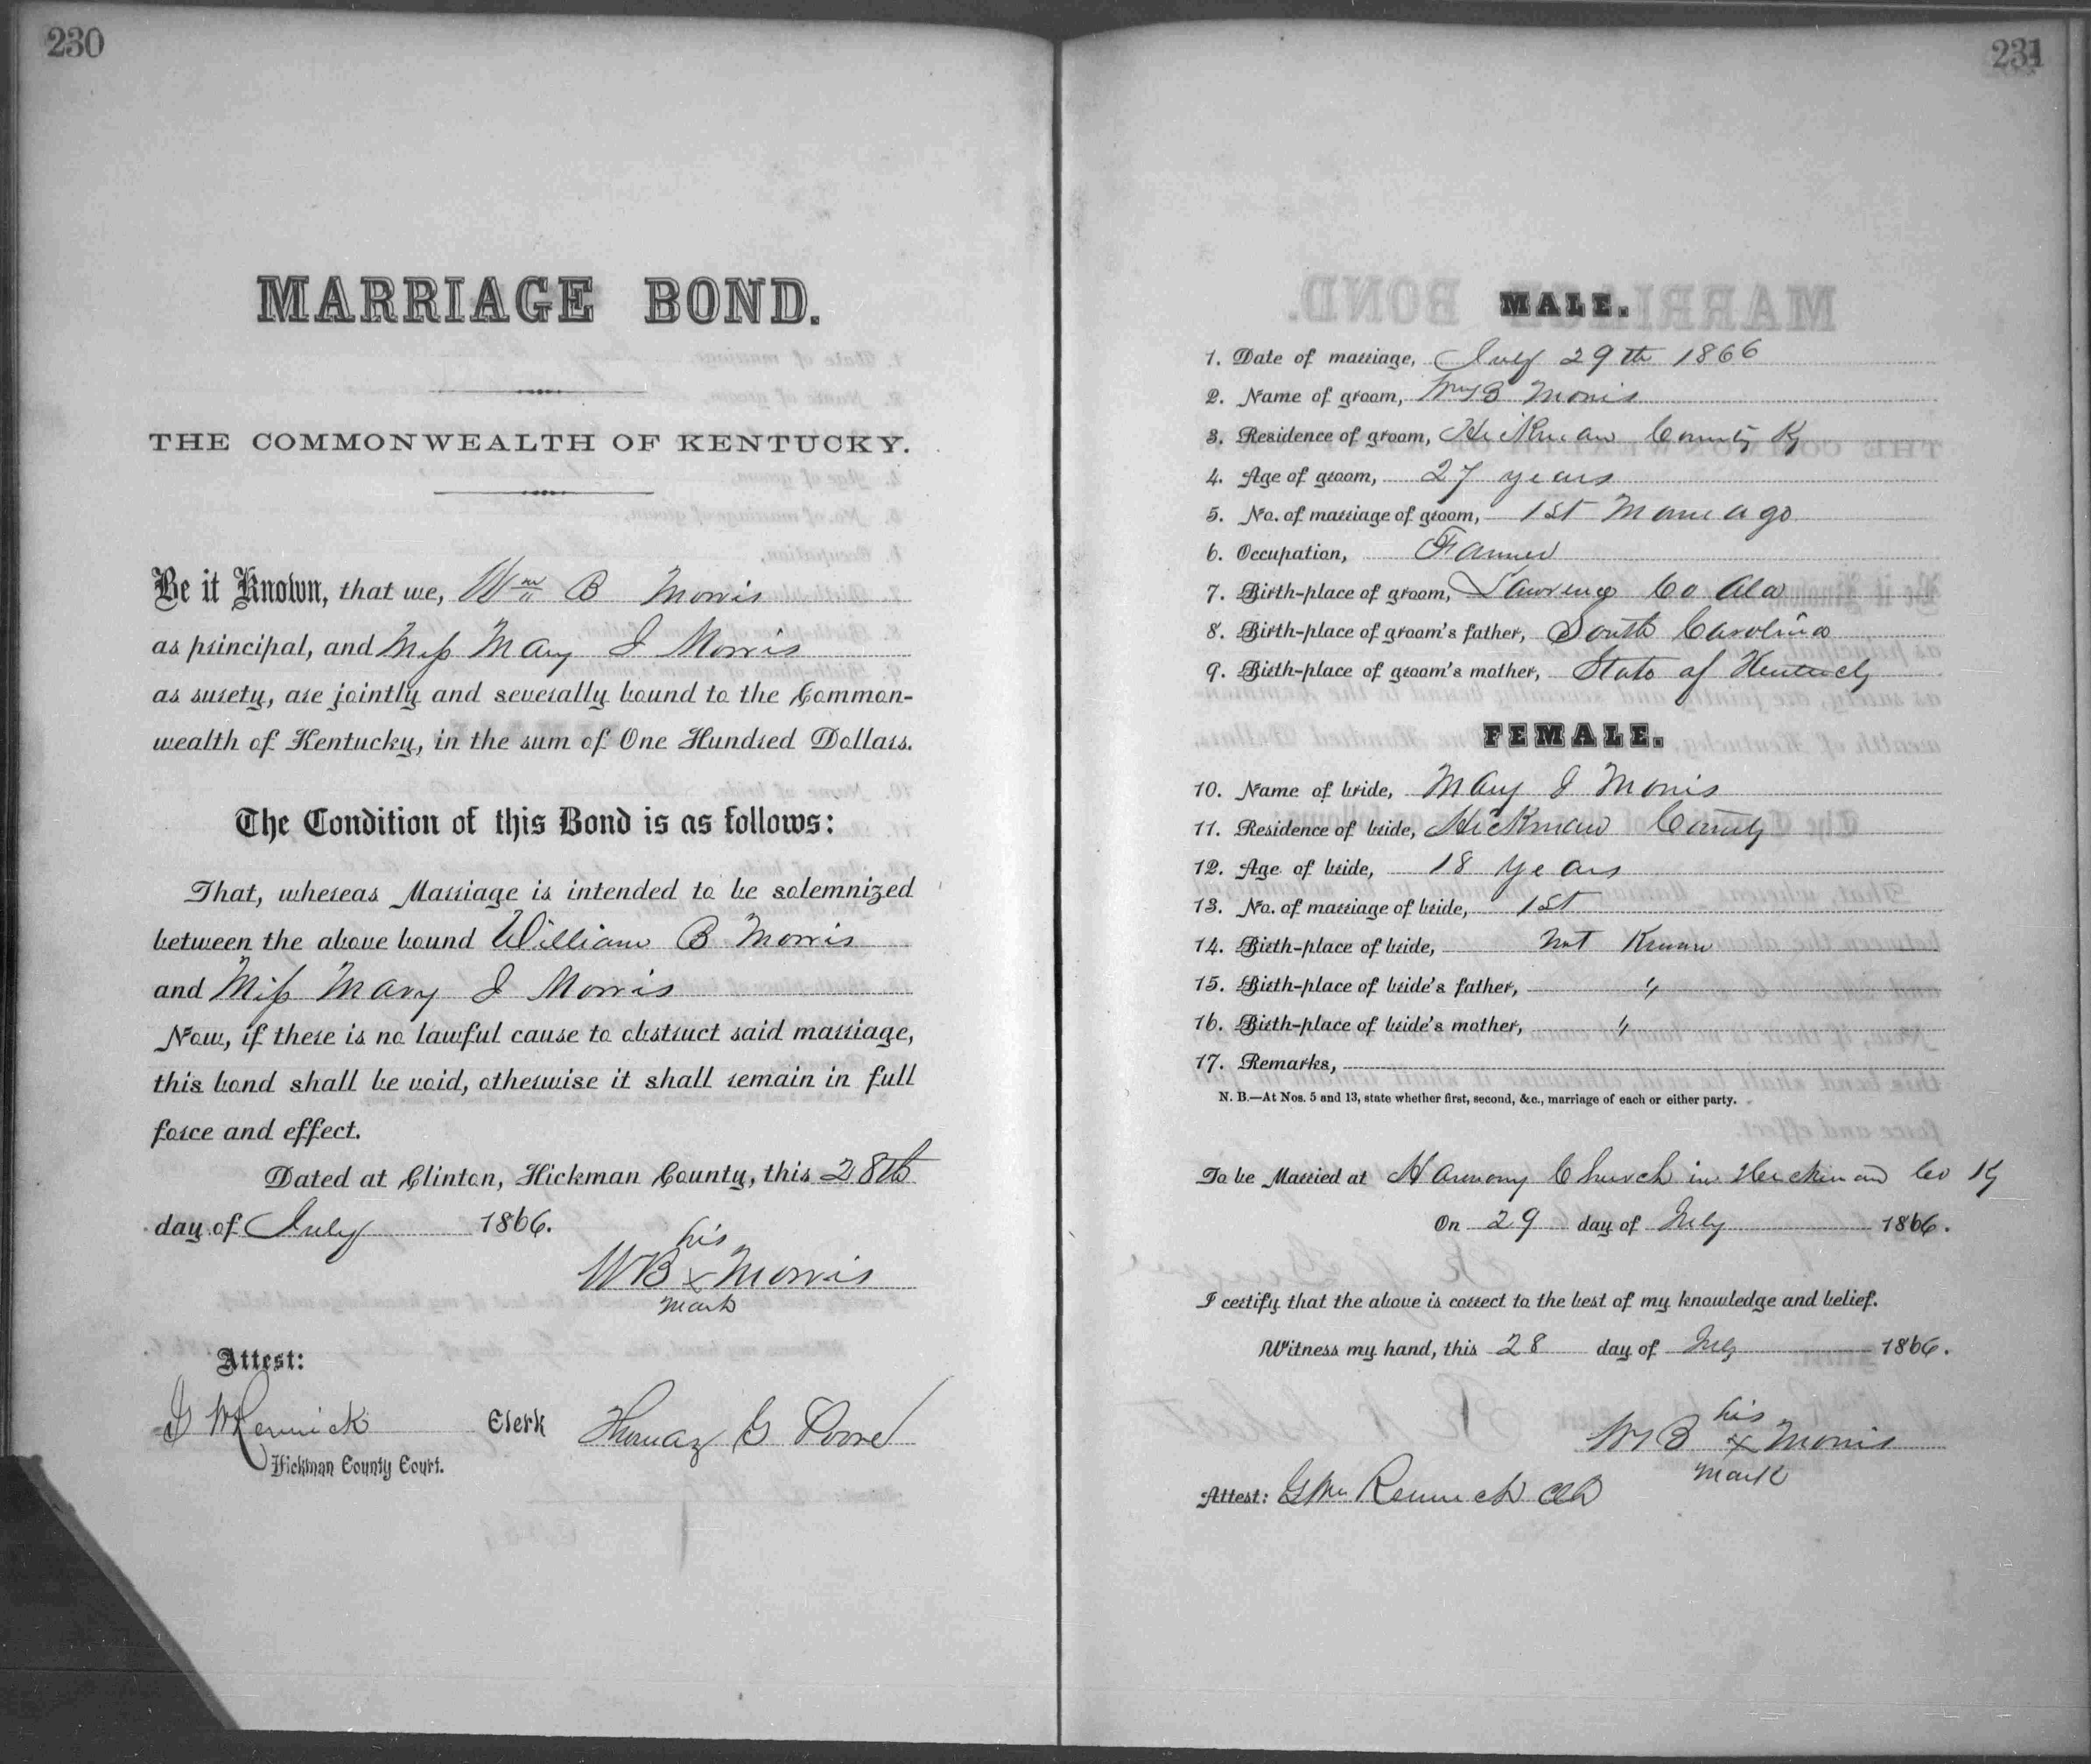 230
MARRIAGE BOND.
THE COMMONWEALTH OF KENTUCKY.
Be it Known, that we, Wm B Morris
as principal, and Miss Mary J Morris
as surety, are jointly and severally bound to the Common-
wealth of Kentucky, in the sum of One Hundred Dollars.
The Condition of this Bond is as follows:
That, whereas Marriage is intended to be solemnized
between the above bound William B Morris
and Miss Mary J Morris
Now, if there is no lawful cause to obstruct said marriage,
this bond shall be void, otherwise it shall remain in full
force and effect.
Dated at Clinton, Hickman County, this 28th
day of July 1866.
his
WB x Morris
mark
Attest:
Clerk Thomas G
Hickman County Court.
231
MALE.
1. Date of marriage, July 29th 1866
2. Name of groom, Wm B Morris
3. Residence of groom, Hickman County Ky
4. Age of groom, 27 years
5. No. of marriage of groom, 1st Marriage
6. Occupation, Farmer
7. Birth-place of groom, Lawrence Co Ala
8. Birth-place of groom's father, South Carolina
9. Birth-place of groom's mother, State of Kentucky
FEMALE.
10. Name of bride, Mary J Morris
11. Residence of bride, Hickman County
12. Age of bride, 18 years
13. No. of marriage of bride, 1st
14. Birth-place of bride, Not Known
15. Birth-place of bride's father, "
16. Birth-place of bride's mother, "
17. Remarks,
N. B.—At Nos. 5 and 13, state whether first, second, &c., marriage of each or either party.
To be Married at Harmony Church in Hickman Co Ky
On 29 day of July 1866.
I certify that the above is correct to the best of my knowledge and belief.
Witness my hand, this 28 day of July 1866.
his
Wm B x Morris
mark
Attest: Rennick Clk